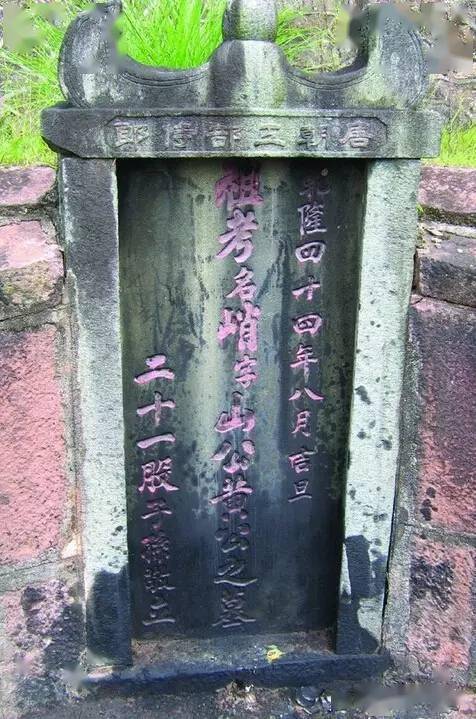 唐朝工部侍郎
乾隆四十四年八月吉旦
祖考名峭字山公黄公之墓
二十一股子孫敬立